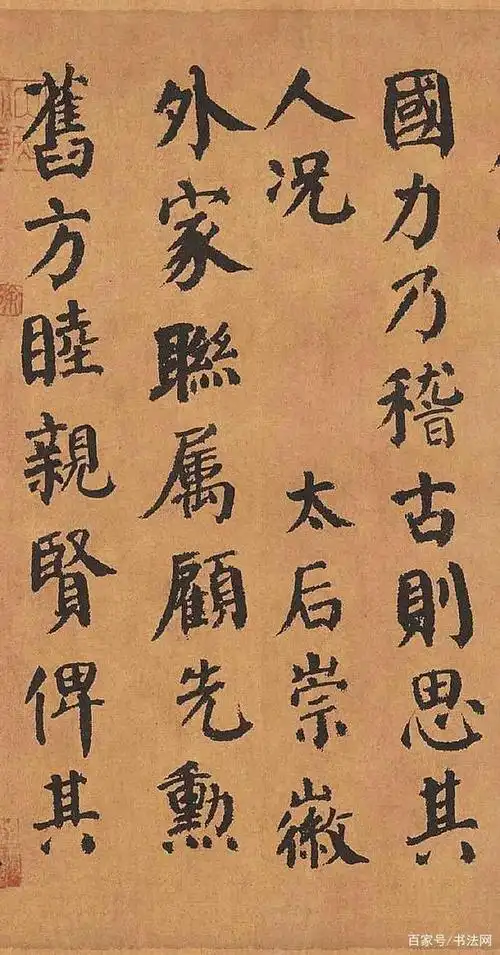 國力乃稽古則思其
人况 太后崇徽
外家聯属顧先勲
舊方睦親賢俾其
百家号/书法网